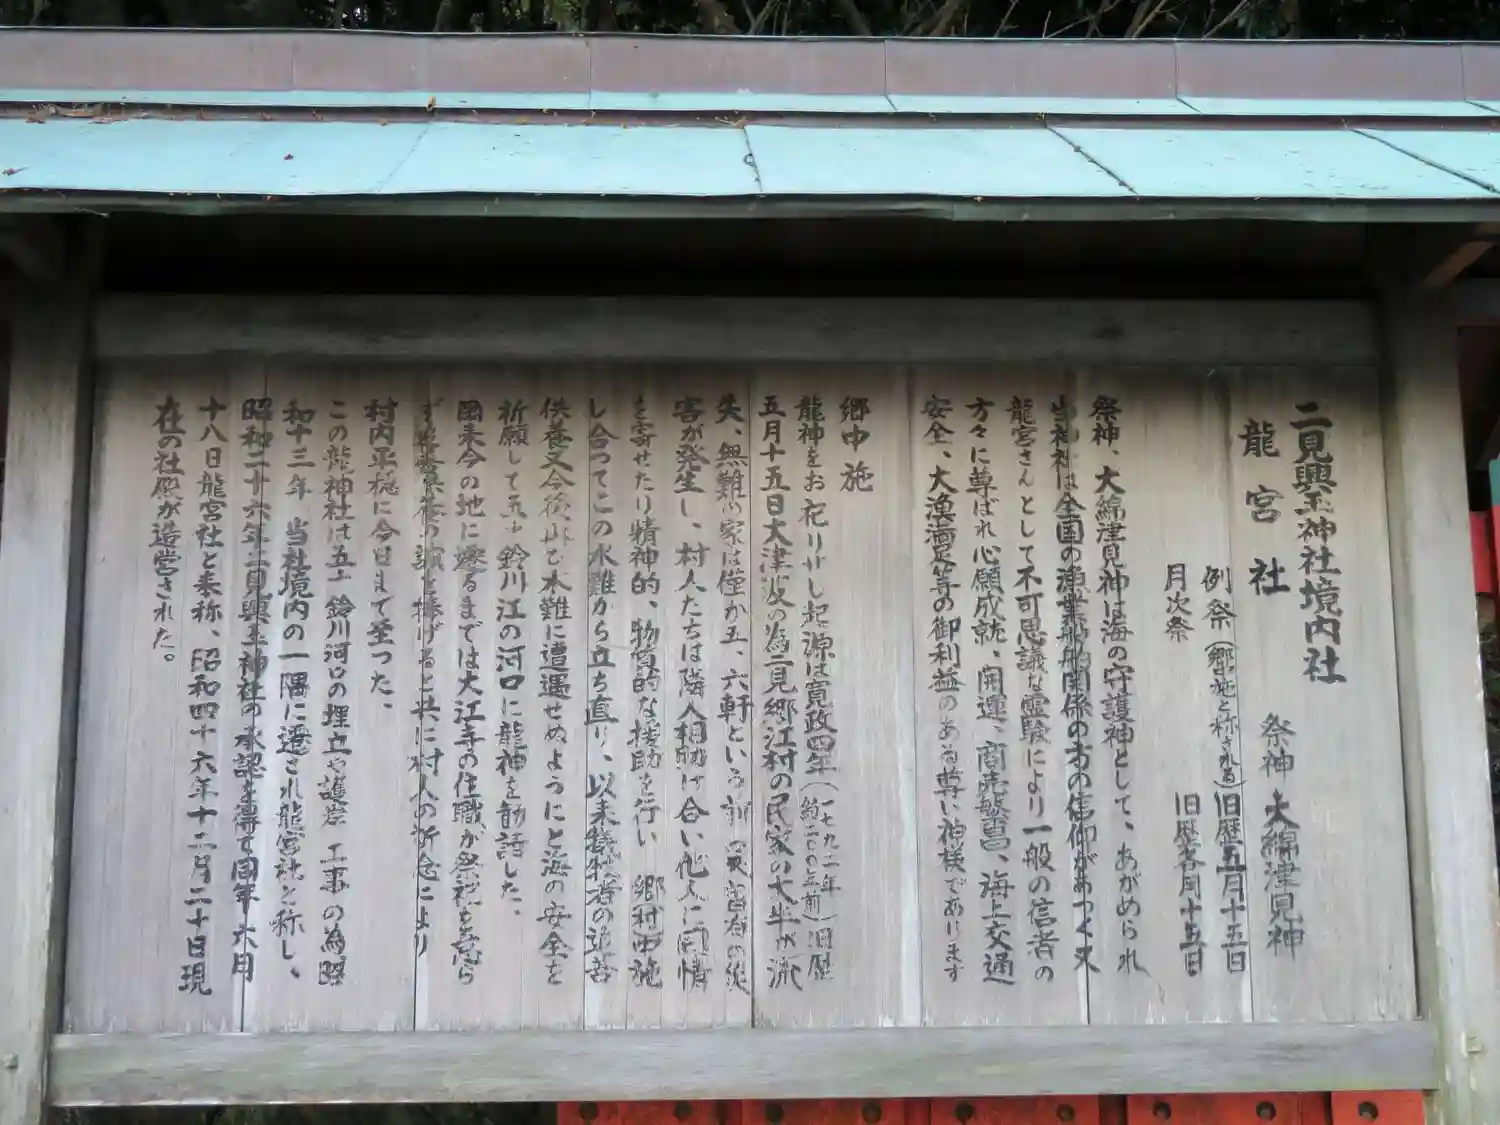 二見興玉神社境内社
龍宮社　祭神 大綿津見神
例祭（郷中施と称される）旧歴五月十五日
月次祭　旧歴各月十五日
祭神、大綿津見神は海の守護神として、あがめられ
当神社は全国の漁業船舶関係の方の信仰があつく又
龍宮さんとして不可思議な霊験により一般の信者の
方々に尊ばれ心願成就、開運、商売繁昌、海上交通
安全、大漁満足等の御利益のある尊い神様であります
郷中施
龍神をお祀りせし起源は寛政四年（一七九二年）（約二〇〇年前）旧歴
五月十五日大津波の為二見郷江村の民家の大半が流
失、無難の家は僅か五、六軒という前
害が発生し、村人たちは隣人相助け合い他人に同情
を寄せたり精神的、物質的な援助を行い 郷村中施
し合ってこの水難から立ち直り、以来犠牲者の追善
供養又今後再び水難に遭遇せぬようにと海の安全を
祈願して五十鈴川江の河口に龍神を勧請した、
爾来今の地に遷るまでは大江寺の住職が祭祀を怠ら
ず を捧げると共に村人の祈念により
村内平穏に今日まで至った、
この龍神社は五十鈴川河口の埋立や護岸工事の為昭
和十三年、当社境内の一隅に遷され龍宮社と称し、
昭和二十六年二見興玉神社の承認を得て同年六月
十八日龍宮社と奉称、昭和四十六年十二月二十日現
在の社殿が造営された。